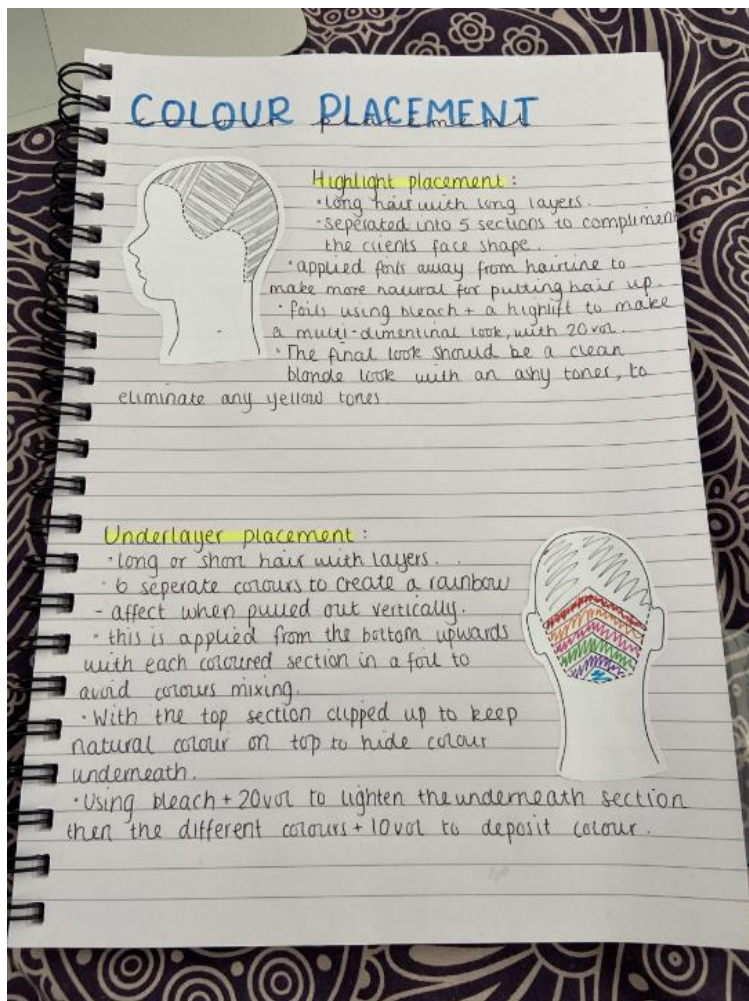 COLOUR PLACEMENT
Highlight placement :
• long hair with long layers.
• seperated into 5 sections to compliment
the clients face shape.
• applied foils away from hairline to
make more natural for putting hair up.
• foils using bleach + a highlift to make
a multi-dimentinal look, with 20 vol.
• The final look should be a clean
blonde look with an ashy toner, to
eliminate any yellow tones.
Underlayer placement :
• long or short hair with layers.
• 6 seperate colours to create a rainbow
- affect when pulled out vertically.
• this is applied from the bottom upwards
with each coloured section in a foil to
avoid colours mixing.
• With the top section clipped up to keep
natural colour on top to hide colour
underneath.
• Using bleach + 20vol to lighten the underneath section
then the different colours + 10vol to deposit colour.